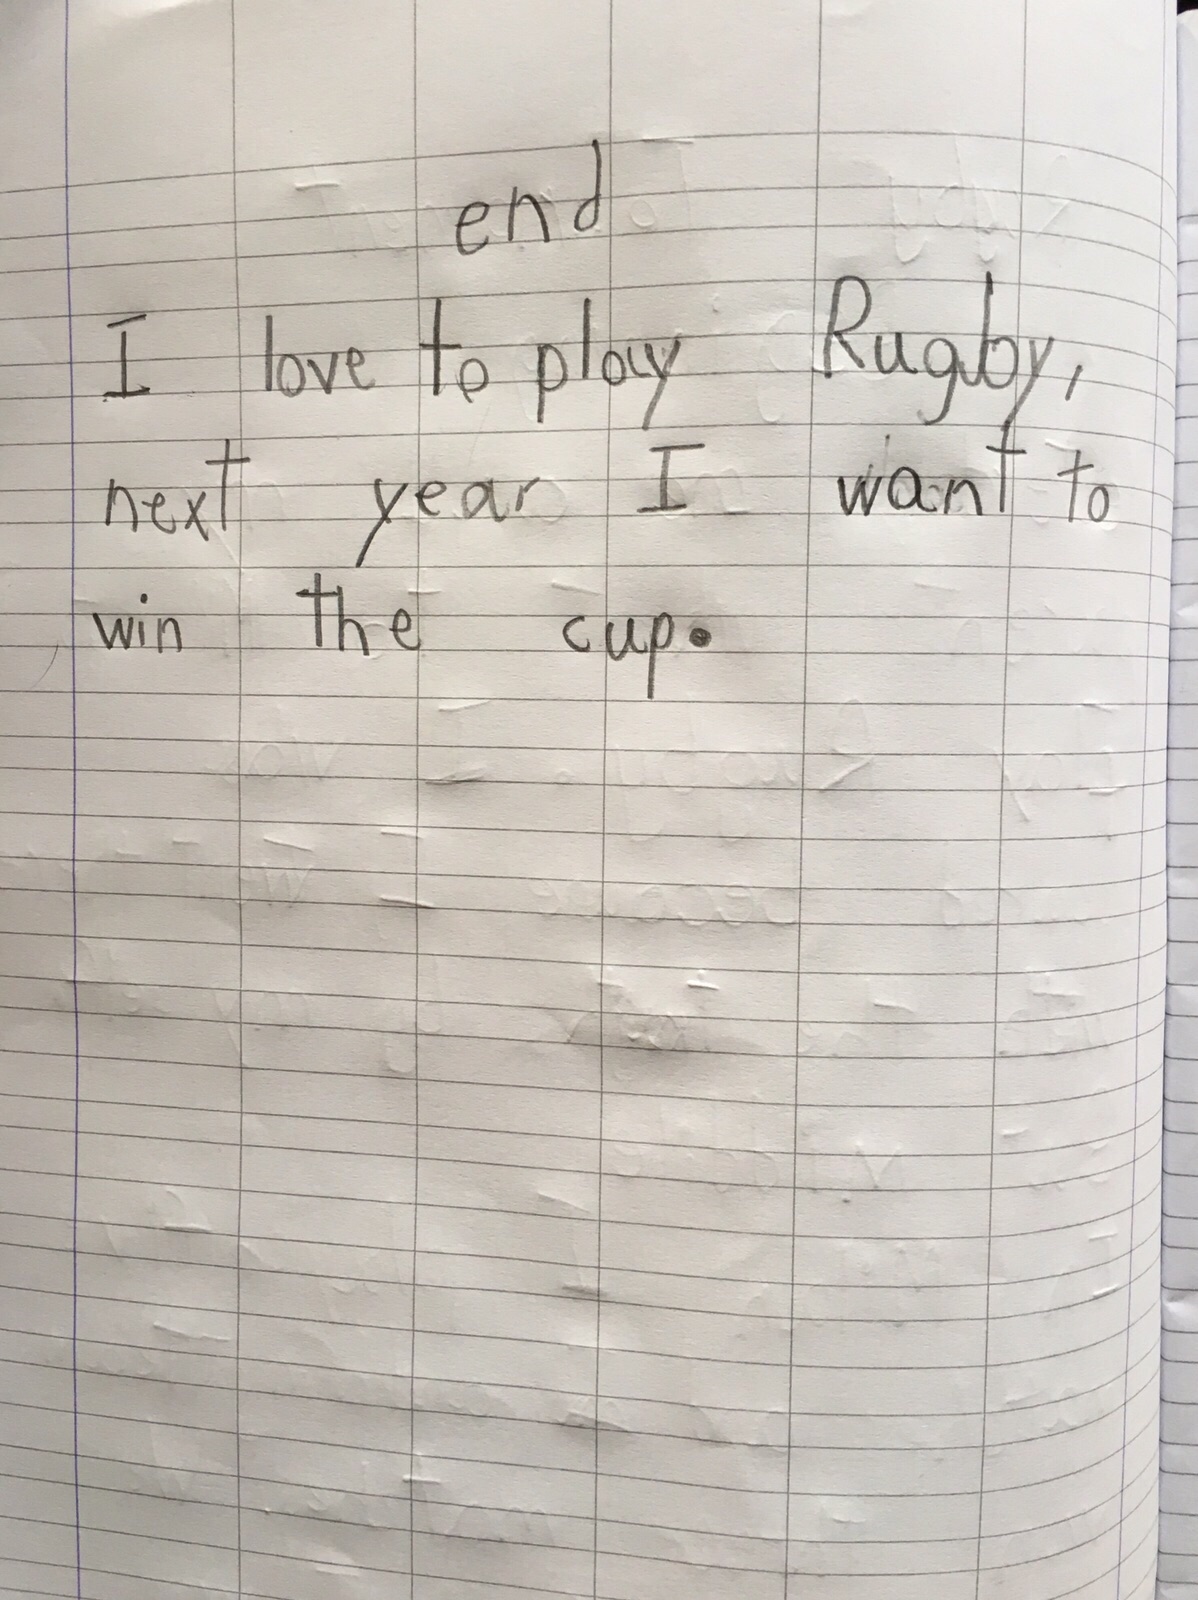 end
I love to play Rugby,
next year I want to
win the cup.